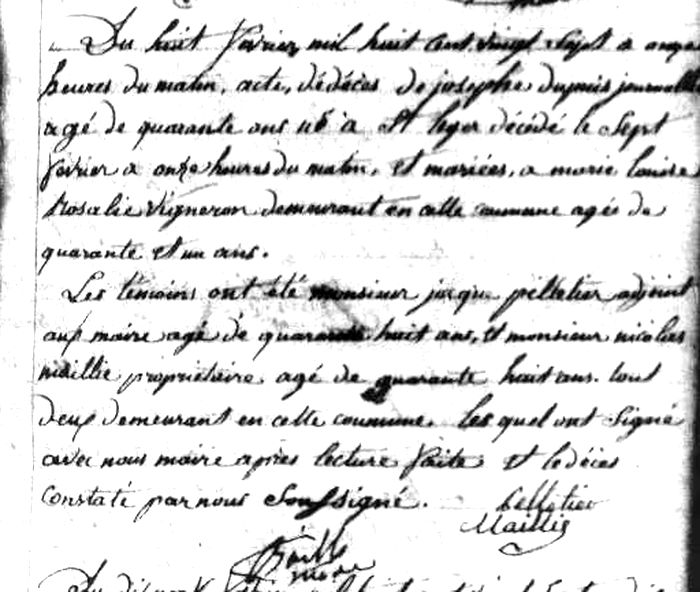 Du huit février mil huit cent vingt sept a onze
heures du matin, acte, dédécès de josephe dupuis journallier
agé de quarante ans né a St leger décédé le Sept
février a onze heures du matin, et mariées, a marie louise
Rosalie Vigneron demeurant en celle commune agée de
quarante et un ans.
Les témoins ont été monsieur jaque pelletier adjoint
aux maire agé de quarante huit ans, et monsieur nicolas
maillie propriétaire agé de quarante huit ans. tout
deux demeurant en cette commune. les quel ont signé
avec nous maire après lecture faite et ledécès
constaté par nous Soussigné. Pelletier
Maillie
maire